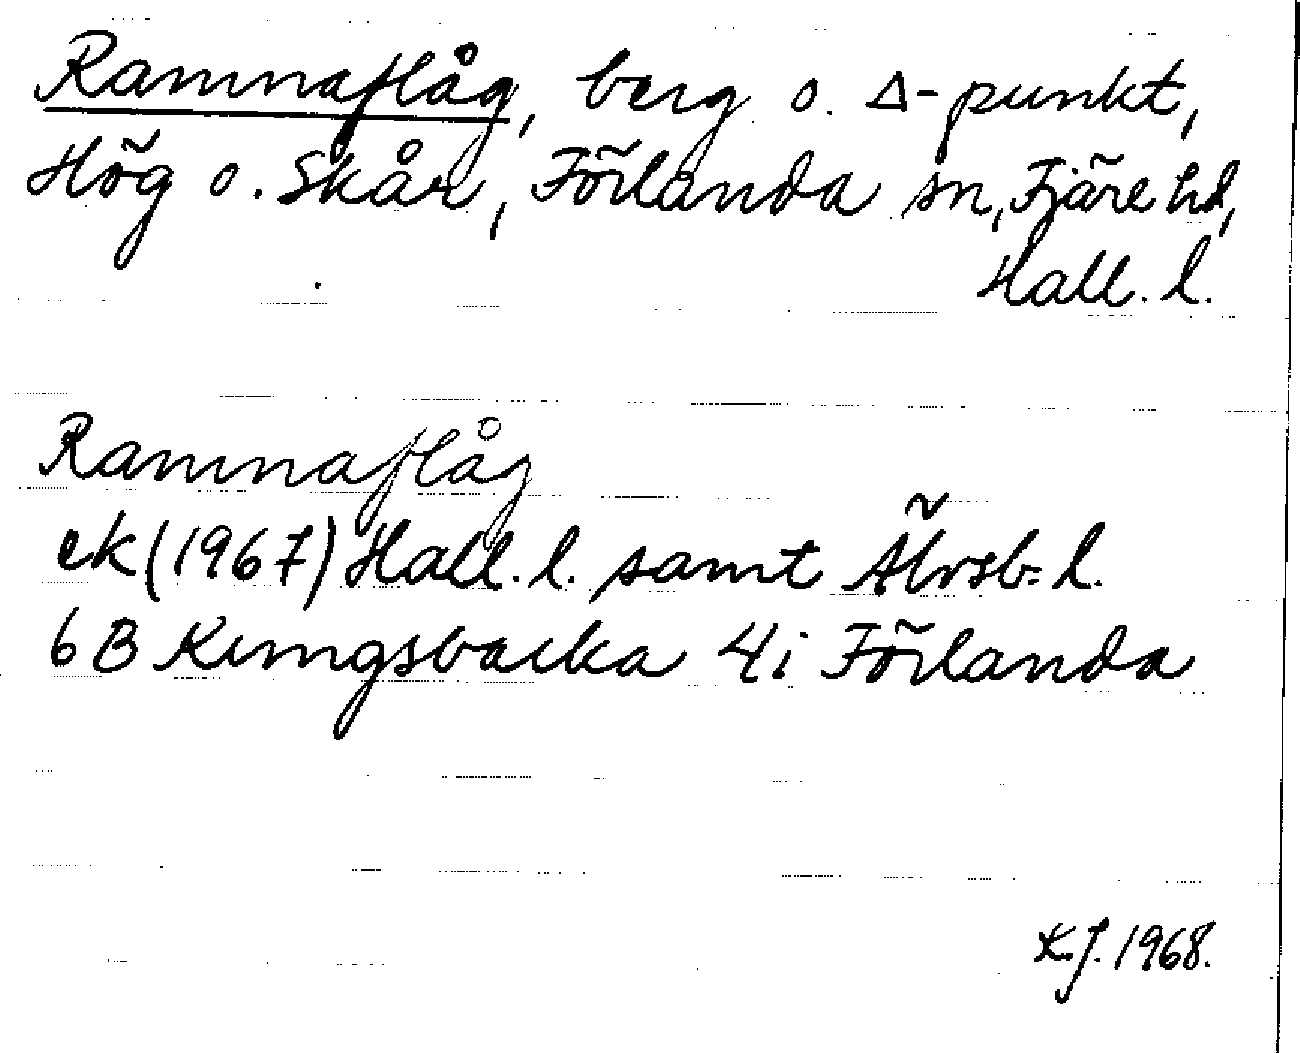 Ramnaflåg, berg o. Δ-punkt,
Hög o. Skår, Förlanda sn, Fjäre hd,
Hall. l.
Ramnaflåg
ek (1967) Hall. l. samt Älvsb. l.
6 B Kungsbacka 4i Förlanda
K.J. 1968.